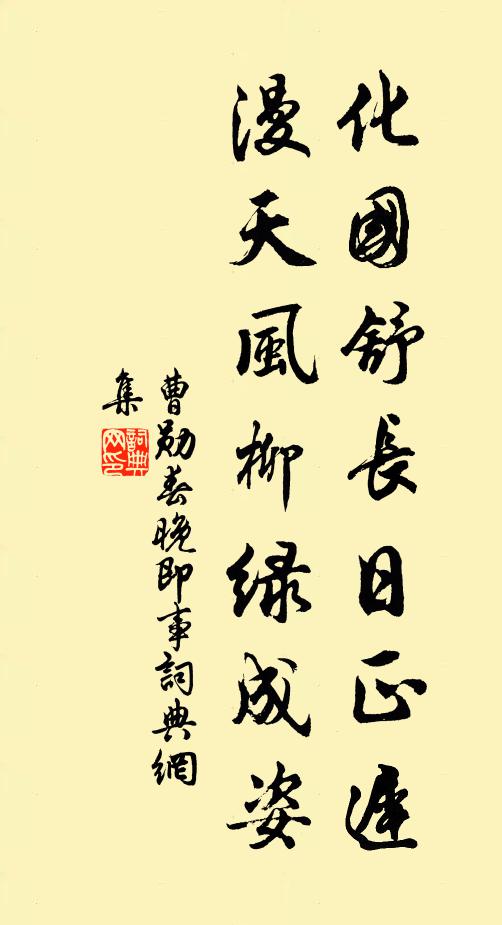 化國舒長日正遲
漫天風柳緑成姿
曹勛春晚即事詞典網
集
詞典
网印